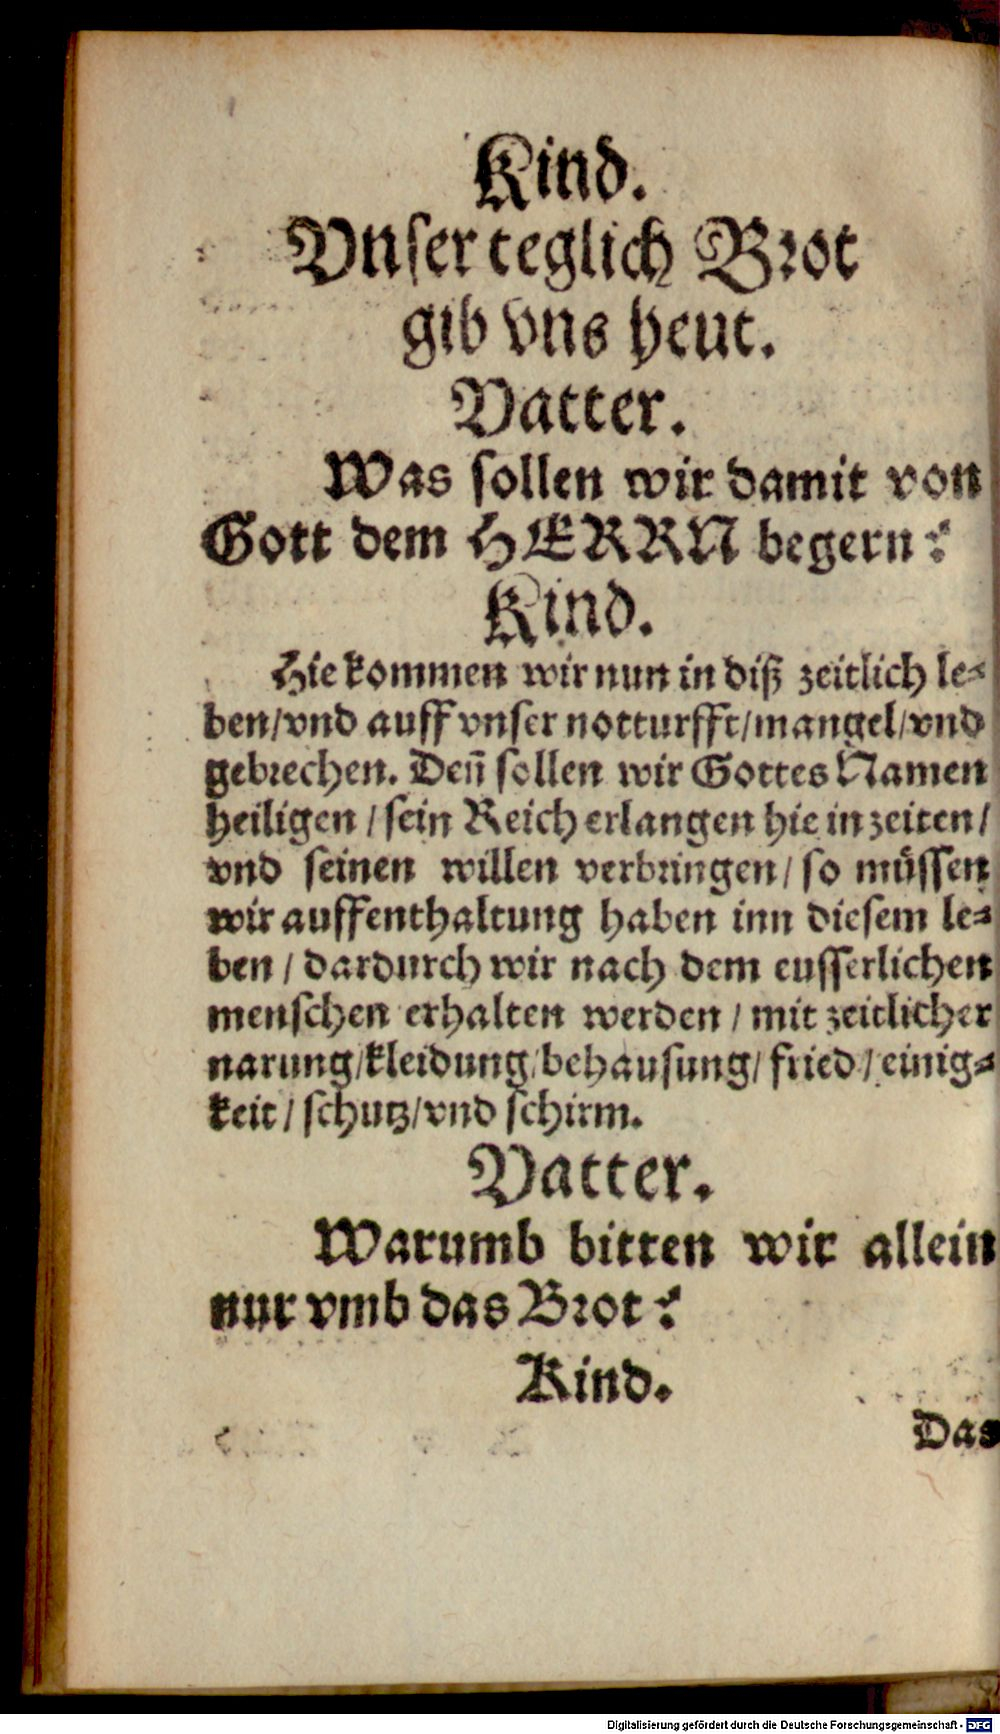 Kind.
Vnser teglich Brot
gib vns heut.
Vatter.
Was sollen wir damit von
Gott dem HERRN begern?
Kind.
Hie kommen wir nun in diß zeitlich le⸗
ben/vnd auff vnser notturfft/mangel/vnd
gebrechen. Deñ sollen wir Gottes Namen
heiligen / sein Reich erlangen hie in zeiten /
vnd seinen willen verbringen / so müssen
wir auffenthaltung haben inn diesem le⸗
ben / dardurch wir nach dem eusserlichen
menschen erhalten werden / mit zeitlicher
narung/kleidung/behausung/ fried / einig⸗
keit / schutz/vnd schirm.
Vatter.
Warumb bitten wir allein
nur vmb das Brot?
Kind.
Das
Digitalisierung gefördert durch die Deutsche Forschungsgemeinschaft - DFG